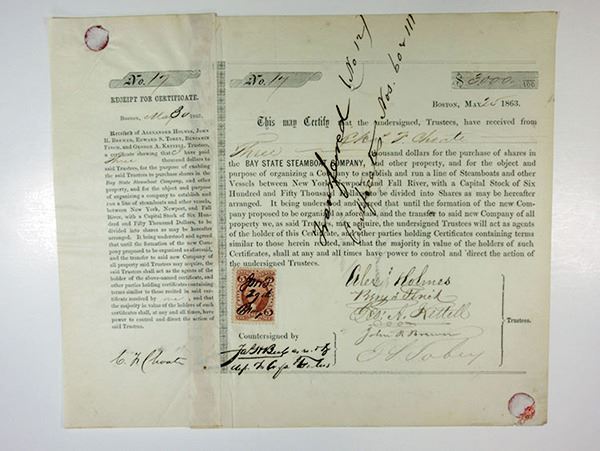 No. 17
RECEIPT FOR CERTIFICATE.
BOSTON, May 30 1863.
Received of ALEXANDER HOLMES, JOHN
B. BREWER, EDWARD S. TOBEY, BENJAMIN
FINCH, and GEORGE A. KETTELL, Trustees,
a certificate showing that I have paid
Three thousand dollars to
said Trustees, for the purpose of enabling
the said Trustees to purchase shares in the
Bay State Steamboat Company, and other
property, and for the object and purpose
of organizing a company to establish and
run a line of steamboats and other vessels,
between New York, Newport, and Fall
River, with a capital of Six Hundred
and Fifty Thousand Dollars, to be
divided into shares as may be hereafter
arranged. It being understood and agreed
that until the formation of the new Com-
pany proposed to be organized as aforesaid, and
the transfer to said new Company of all
property said Trustees may acquire, the
said Trustees shall act as the agents of
the holder of the above-named certificate, and
other parties holding certificates containing
terms similar to those recited in said cer-
tificate received by me, and that the
majority in value of the holders of such
certificates, shall at any and all times, have
power to control and direct the action of
said Trustees.
C. F. Choate
No. 17
$ 3000 100
BOSTON, MAY 30 1863.
This may Certify that the undersigned, Trustees, have received from
Chas F Choate
Three thousand dollars for the purchase of shares in
the BAY STATE STEAMBOAT COMPANY, and other property, and for the object and
purpose of organizing a Company to establish and run a line of Steamboats and other
Vessels between New York, Newport and Fall River, with a Capital Stock of Six
Hundred and Fifty Thousand Dollars to be divided into Shares as may be hereafter
arranged. It being understood and agreed that until the formation of the new Com-
pany proposed to be organized as aforesaid, and the transfer to said new Company of all
property we, as said Trustees, may acquire, the undersigned Trustees will act as agents
of the holder of this Certificate, and other parties holding Certificates containing terms
similar to those herein recited, and that the majority in value of the holders of such
Certificates, shall at any and all times have power to control and direct the action of
the undersigned Trustees.
Transferred (No 12)
Nos. 60 & 111
Alex Holmes
Benj Finch
Geo. A. Kettell
John B Brewer
E S Tobey
Trustees.
Countersigned by